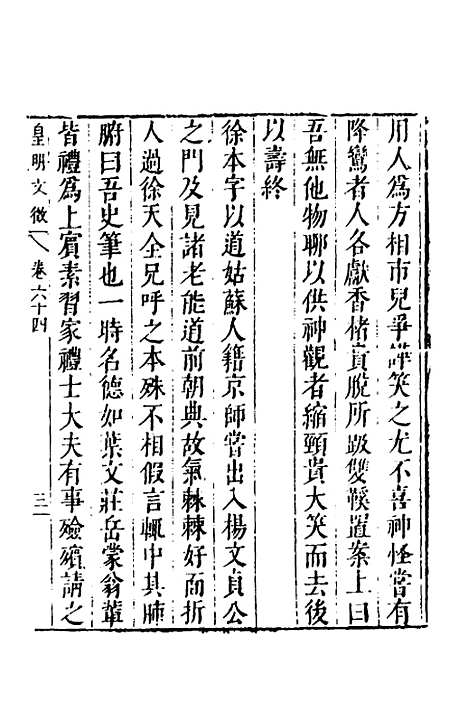 用人為方相市兒爭譁笑之尤不喜神怪嘗有
降鸞者人各獻香楮賁脫所趿雙鞵置案上曰
吾無他物聊以供神觀者縮頸賁大笑而去後
以壽終
徐本字以道姑蘇人籍京師嘗出入楊文貞公
之門及見諸老能道前朝典故氣棘棘好面折
人過徐天全兄呼之本殊不相假言輒中其肺
腑曰吾史筆也一時名德如葉文莊岳蒙翁輩
皆禮為上賓素習家禮士大夫有事殮殯請之
皇明文徵 卷六十四 三